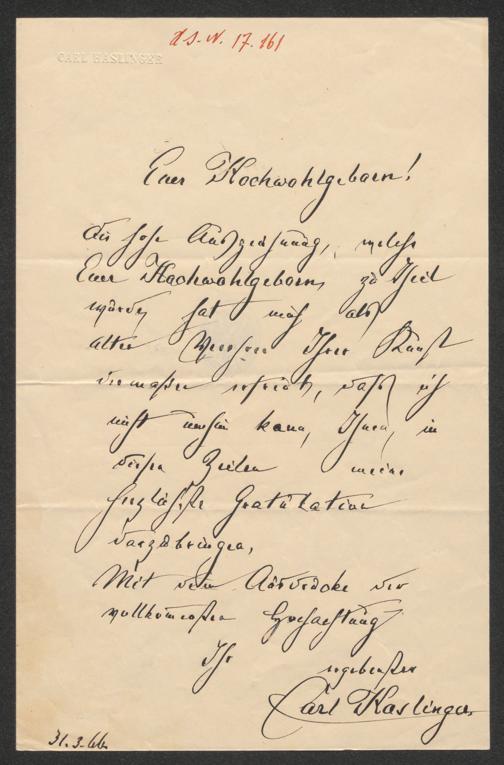 J.S.N. 17.161
CARL HASLINGER
Euer Hochwohlgeboren!
Die hohe Auszeichnung, welche
Euer Hochwohlgeboren, zu Theil
wurde, hat mich als
alter Verehrer Ihrer Kunst
dermaßen erfreut, daß ich
nicht umhin kann, Ihnen, in
diesen Zeilen meine
herzlichste Gratulation
darzubringen,
Mit dem Ausdrucke der
vollkommensten Hochachtung
Ihr ergebenster
Carl Haslinger
31.3.66.